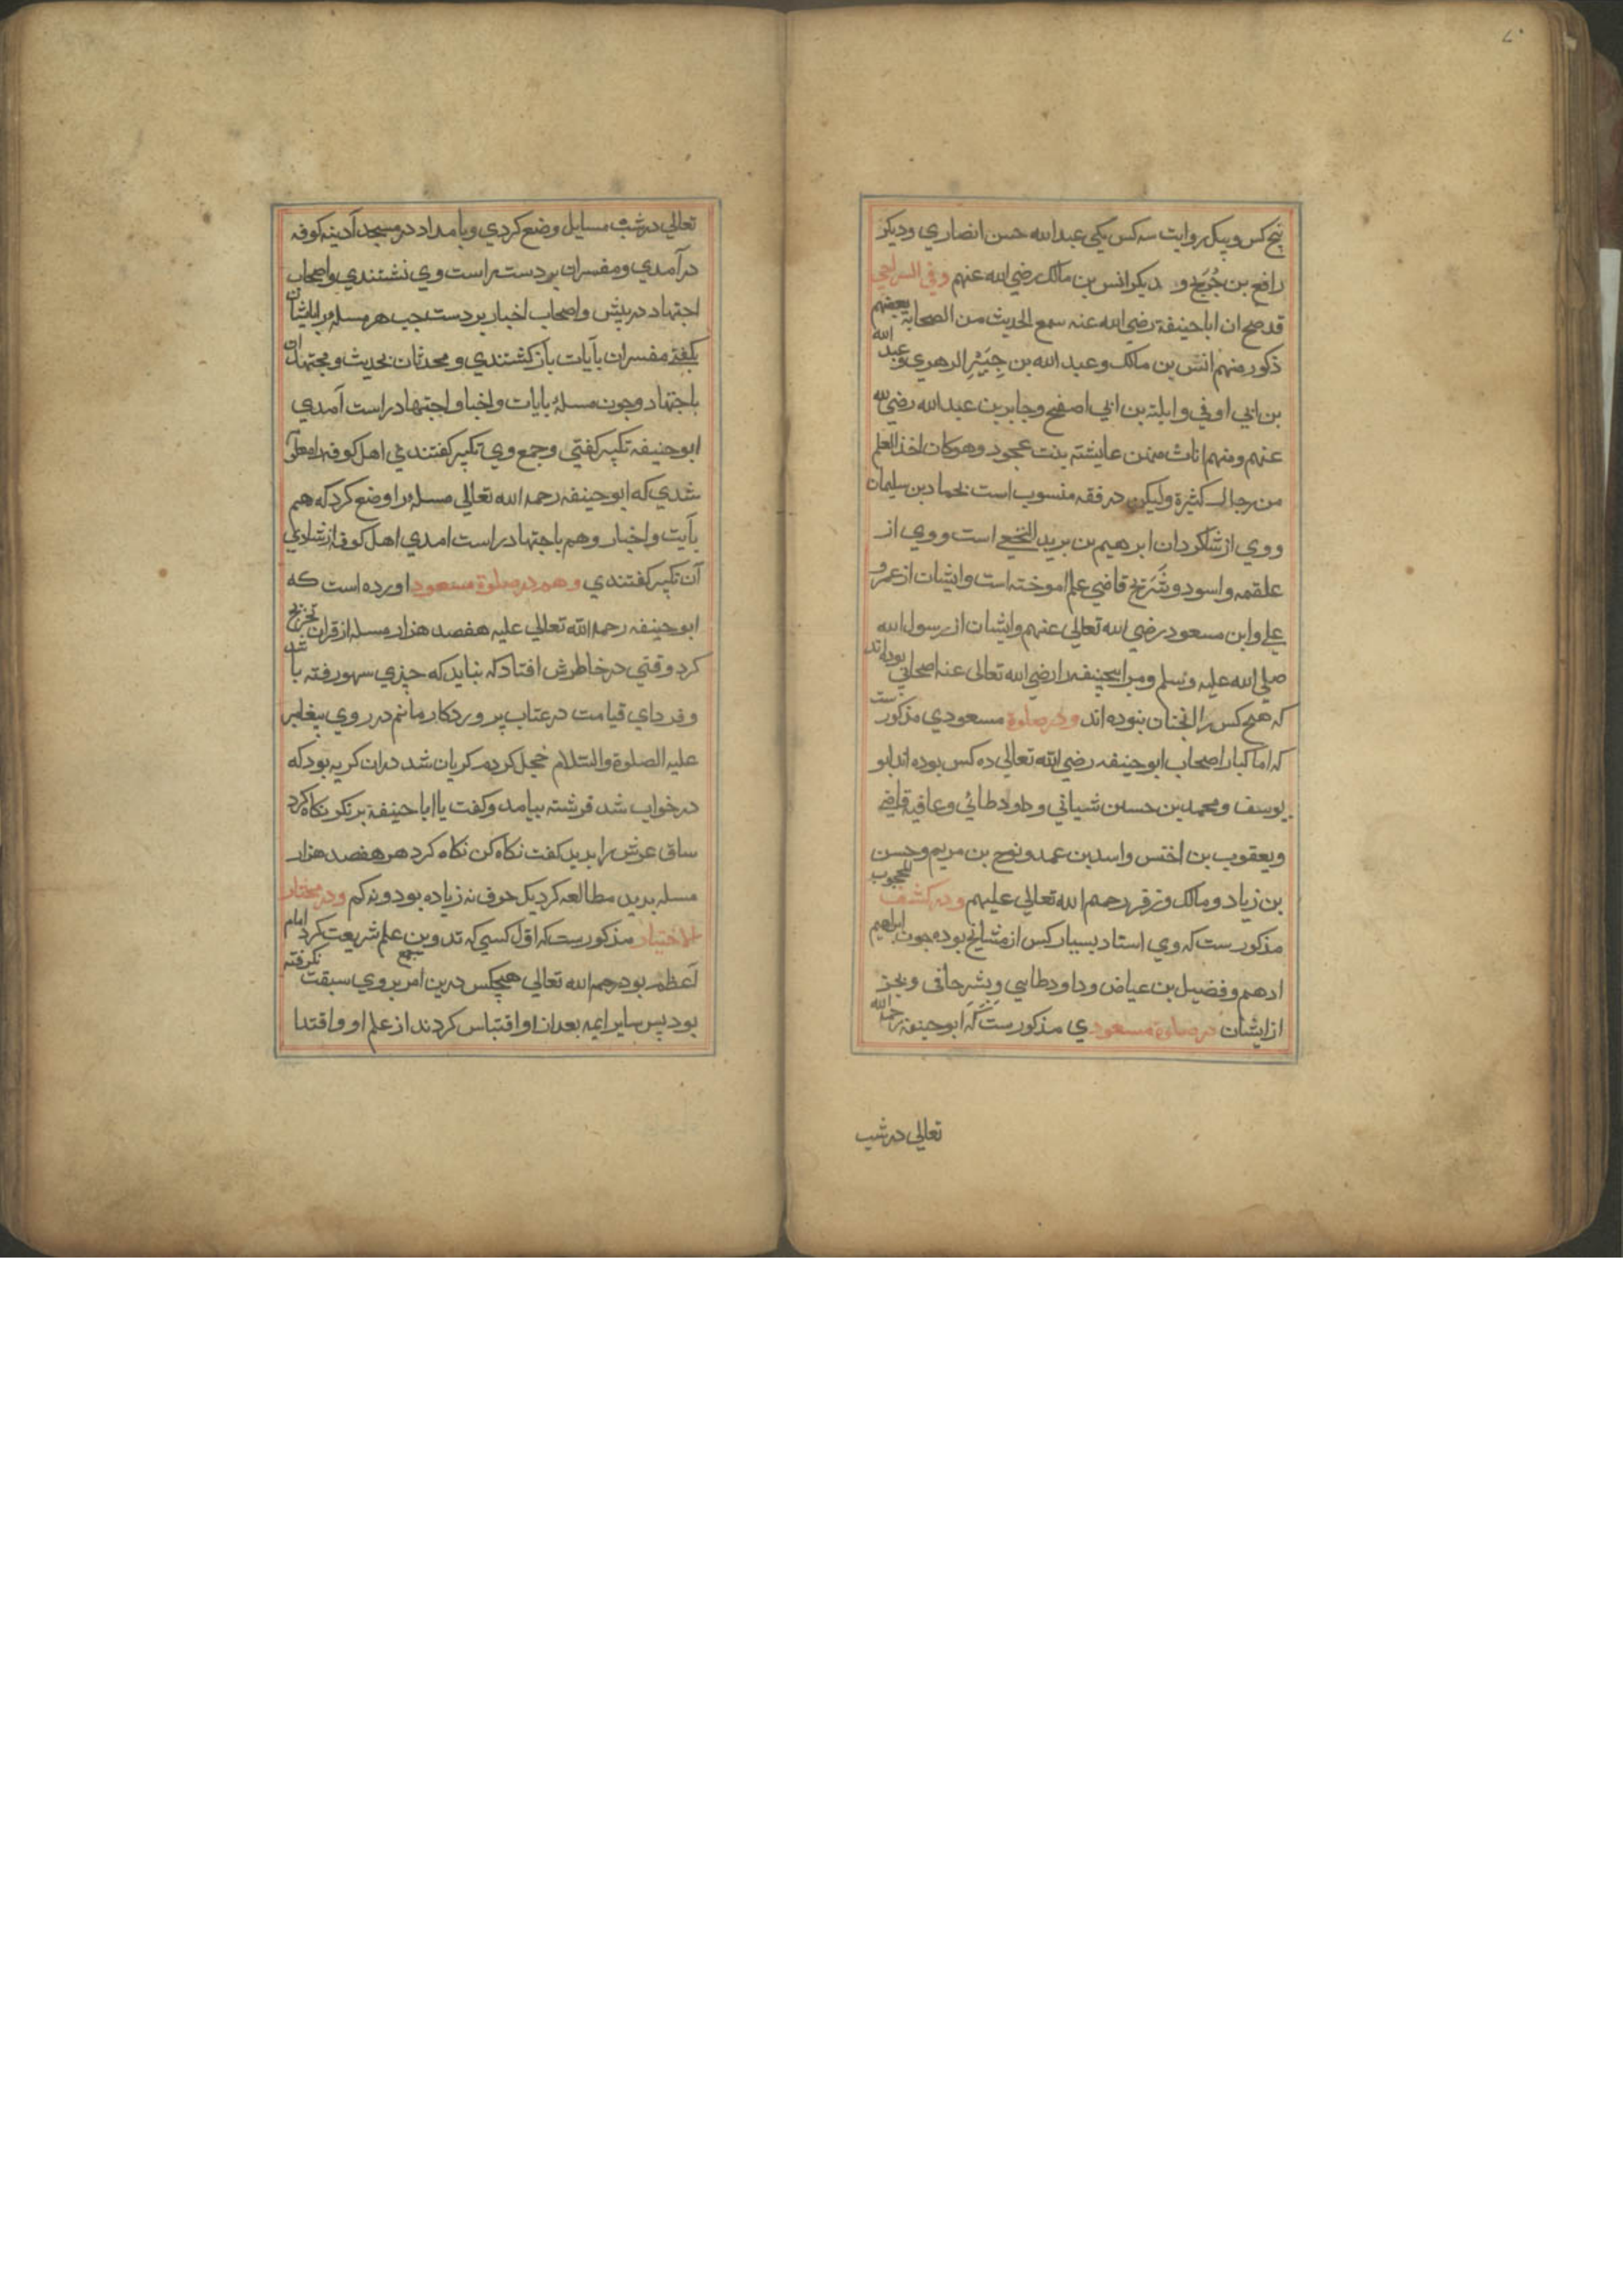 پنج کس و بیک روایت سه کس یکی عبدالله حسن انصاري و دیکر
رافع بن خدیج و دیکر انس بن مالک رضي الله عنهم وفي السراجي
قد صح ان اباحنیفة رضي الله عنه سمع الحدیث من الصحابة بعضهم
ذکور منهم انس بن مالک وعبد الله بن الزهري وعبد الله
بن ابي اوفي و ابلة بن ابي اصفح وجابر بن عبد الله رضي الله
عنهم ومنهم اناث منهن عایشته بنت عجود وهو کان اخذ العلم
من رجال کثیرة ولیکن در فقه منسوب است بحماد بن سلیمان
ووي از شاکردان ابرهیم بن یرید النخعي است ووي از
علقمه و اسود و شریح قاضي علم اموخته است وایشان از عمر و
علي وابن مسعود رضي الله تعالی عنهم وایشان از رسول الله
صلي الله علیه وسلم ومر ابیحنیفه را رضي الله تعالی عنه اصحابي بوده اند
که هیچ کس را انجنان نبوده اند ودر صلوة مسعودي مذکور ست
که اما کبار اصحاب ابوحنیفه رضي الله تعالی ده کس بوده اند ابو
یوسف و محمد بن حسن شیباني و داود طائي و عافیه قاضي
ویعقوب بن اختس واسد بن عمد ونوح بن مریم وحسن
بن زیاد و مالک و زفر رحمهم الله تعالی علیهم ودر کشف المحجوب
مذکور ست که وي استاد بسیار کس از مشایخ بوده چون ابراهیم
ادهم وفضیل بن عیاض وداود طایي وبشر حافي وبجز
از ایشان در صلوة مسعودي مذکور ست که ابوحنیفه رحمه الله
تعالی در شب
تعالی در شب مسایل وضع کردي وبامداد در مسجد آدینه کوفه
درآمدي ومفسران بر دست راست وي نشتندي واصحاب
اجتهاد در پیش واصحاب اخبار بر دست چپ هر مسله برایشان
بکفتي مفسران بآیات بازکشتندي ومحدثان بحدیث ومجتهدان
باجتهاد وچون مسلهٔ بایات واخبا واجتهاد راست آمدي
ابوحنیفه تکبیر کفتي وجمع وي تکبیر کفتندي اهل کوفه را معلوم
شدي که ابوحنیفه رحمه الله تعالی مسله را وضع کرد که هم
بآیت واخبار وهم باجتهاد راست امدي اهل کوفه از شادي
آن تکبیر کفتندي وهم در صلوة مسعود اورده است که
ابوحنیفه رحمه الله تعالی علیه هفصد هزار مسله از قران تخریج
کرد وقتي در خاطرش افتاد که نباید که چیزي سهو رفته باشد
وفرداي قیامت در عتاب پروردکار مانم در روي پیغامبر
علیه الصلوة والسلام خجل کردم کریان شد دران کریه بود که
در خواب شد فرشته بیامد وکفت یا اباحنیفة برنکر نکاه کرد
ساق عرش را بدید کفت نکاه کن نکاه کرد هر هفصد هزار
مسله بدید مطالعه کرد یک حرف نه زیاده بود ونه کم ودر مختار
الاختیار مذکور ست که اول کسي که تدوین علم شریعت کرد امام
اعظم بود رحمه الله تعالی هیچکس درین امر بروي سبقت نکرفته
بود پس سایر ایمه بعد از او اقتباس کردند از علم او واقتدا